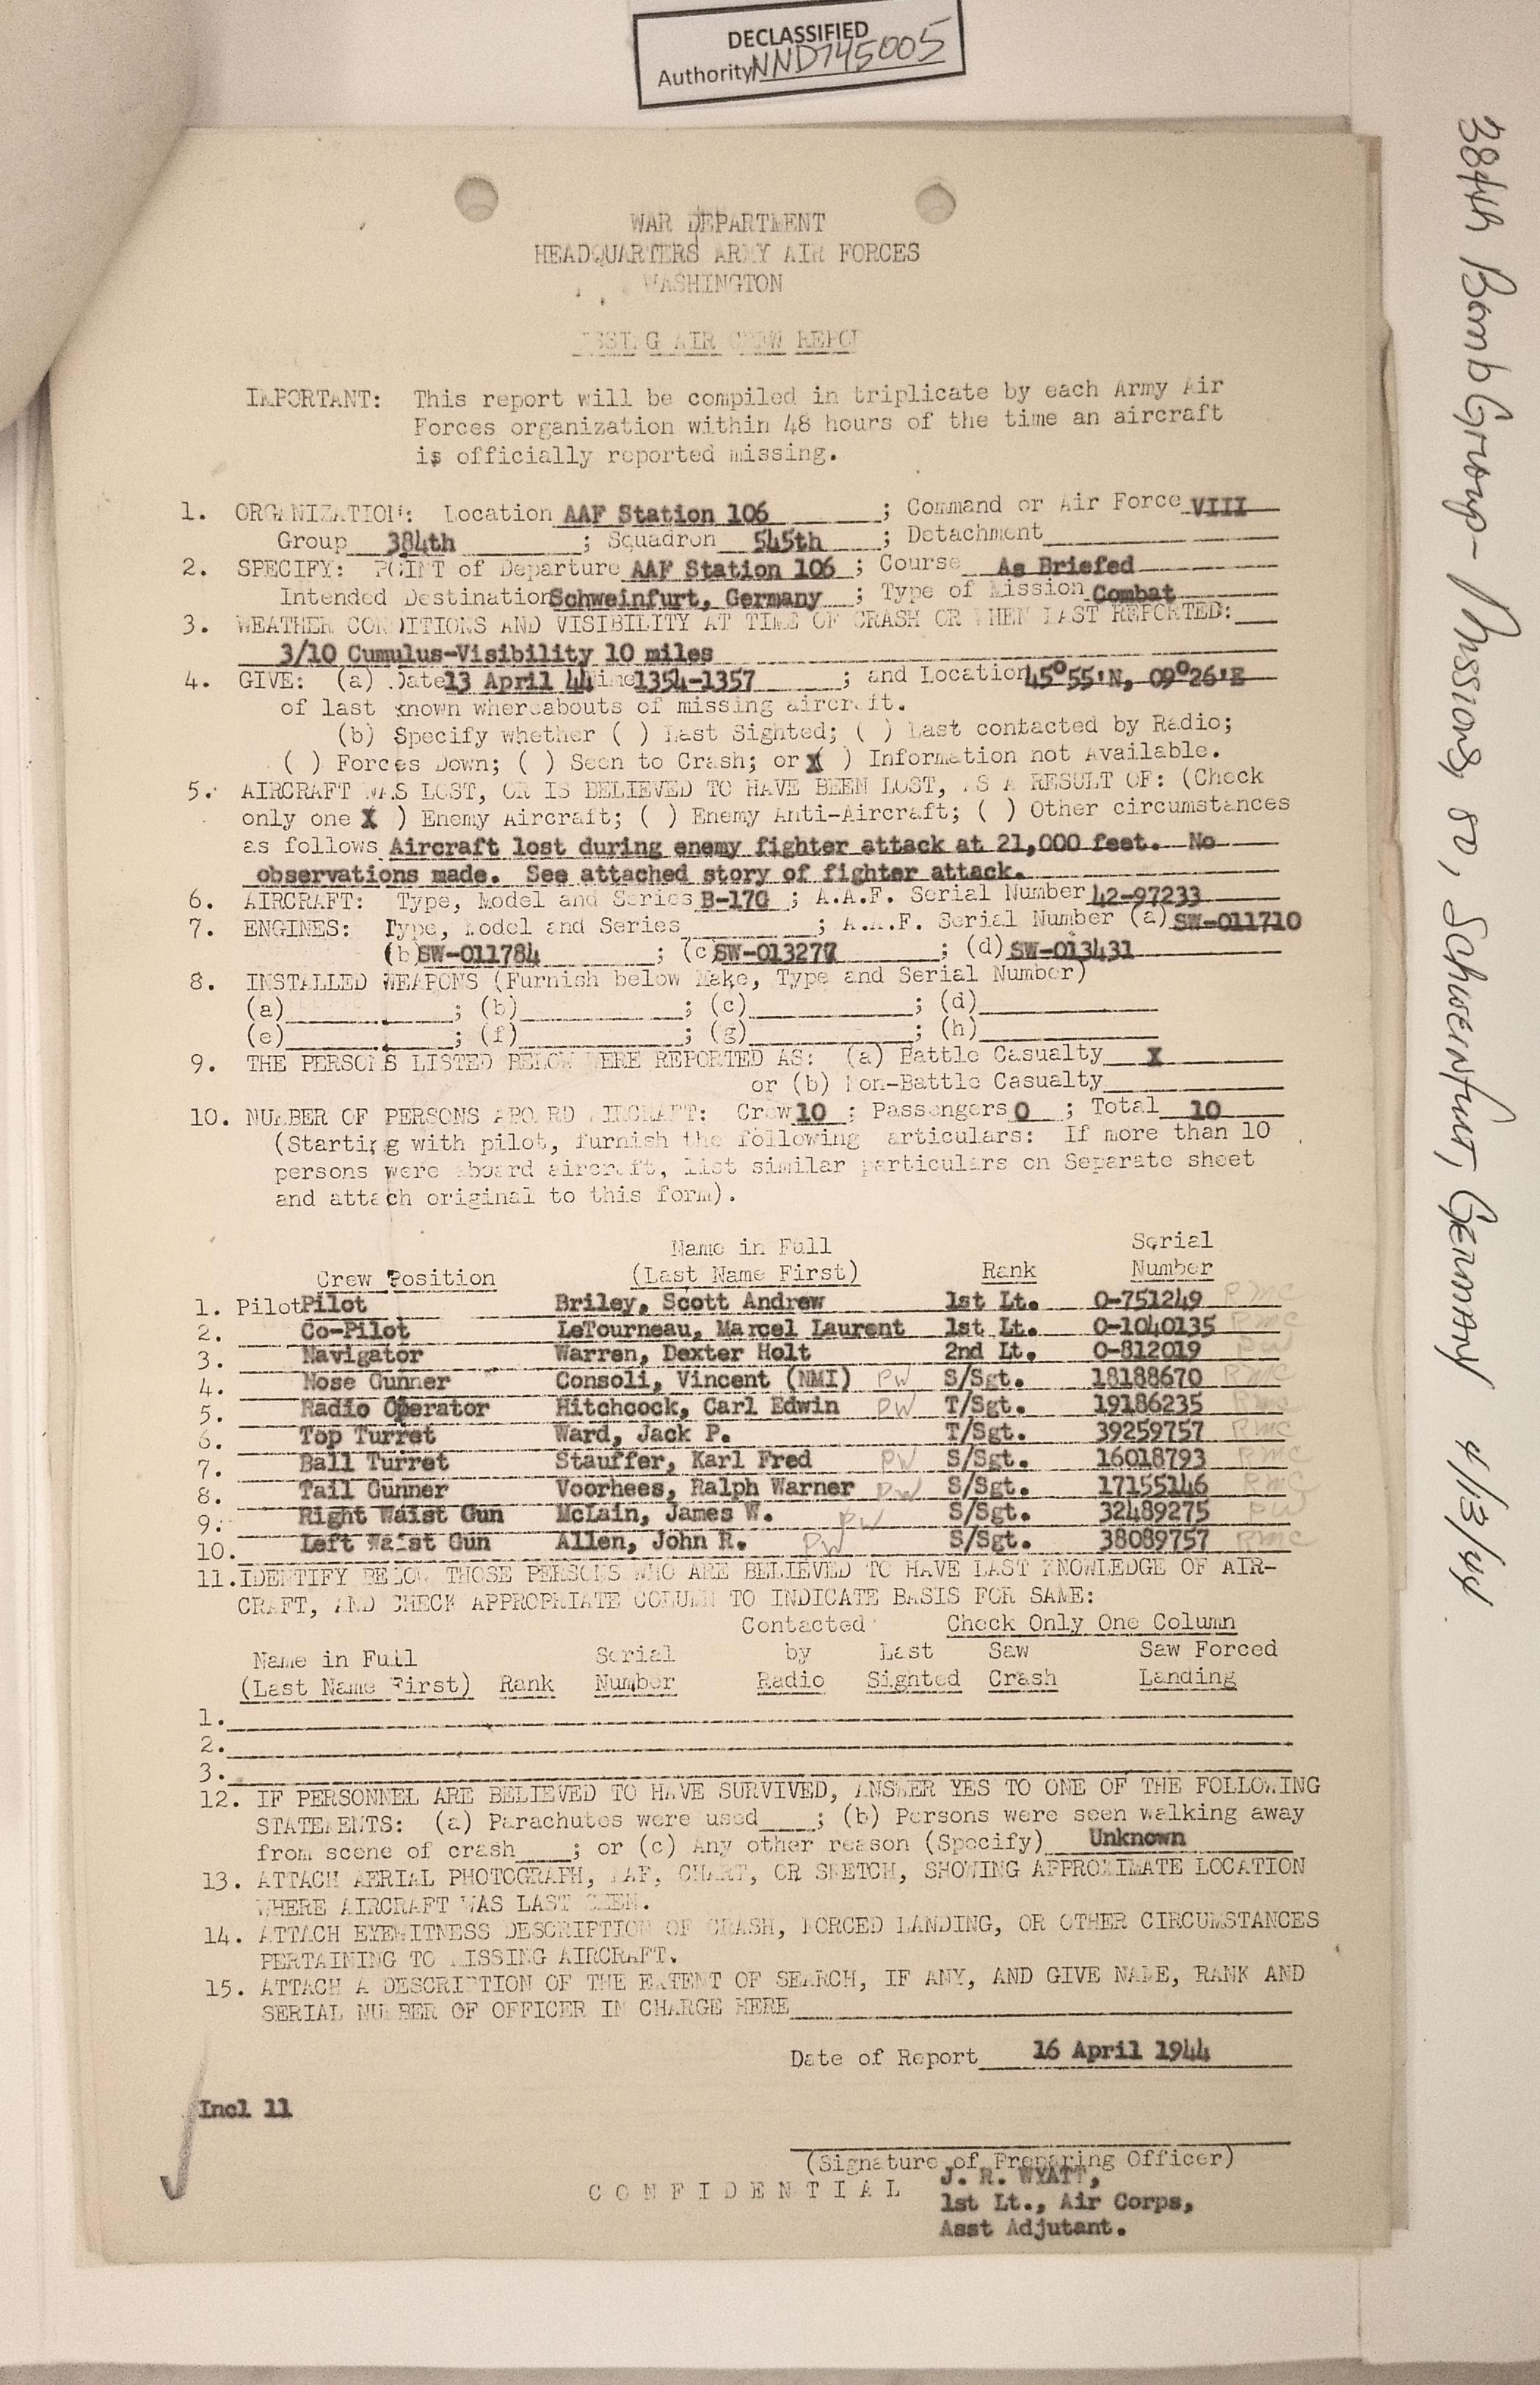 DECLASSIFIED
Authority NND745005
WAR DEPARTMENT
HEADQUARTERS ARMY AIR FORCES
WASHINGTON
AIR CREW REPOR
IMPORTANT: This report will be compiled in triplicate by each Army Air
Forces organization within 48 hours of the time an aircraft
is officially reported missing.
1. ORGANIZATION: Location AAF Station 106 ; Command or Air Force VIII
Group 384th ; Squadron 545th ; Detachment
2. SPECIFY: POINT of Departure AAF Station 106 ; Course As Briefed
Intended Destination Schweinfurt, Germany ; Type of Mission Combat
3. WEATHER CONDITIONS AND VISIBILITY AT TIME OF CRASH OR WHEN LAST REPORTED:
3/10 Cumulus-Visibility 10 miles
4. GIVE: (a) Date 13 April 44 Time 1354-1357 ; and Location 45°55'N, 09°26'E
of last known whereabouts of missing aircraft.
(b) Specify whether ( ) Last Sighted; ( ) Last contacted by Radio;
( ) Forces Down; ( ) Seen to Crash; or X( ) Information not Available.
5. AIRCRAFT WAS LOST, OR IS BELIEVED TO HAVE BEEN LOST, AS A RESULT OF: (Check
only one X ) Enemy Aircraft; ( ) Enemy Anti-Aircraft; ( ) Other circumstances
as follows Aircraft lost during enemy fighter attack at 21,000 feet. No
observations made. See attached story of fighter attack.
6. AIRCRAFT: Type, Model and Series B-17G ; A.A.F. Serial Number 42-97233
7. ENGINES: Type, Model and Series ; A.A.F. Serial Number (a) SW-011710
(b) SW-011784 ; (c) SW-013277 ; (d) SW-013431
8. INSTALLED WEAPONS (Furnish below Make, Type and Serial Number)
(a) ; (b) ; (c) ; (d)
(e) ; (f) ; (g) ; (h)
9. THE PERSONS LISTED BELOW WERE REPORTED AS: (a) Battle Casualty X
or (b) Non-Battle Casualty
10. NUMBER OF PERSONS ABOARD AIRCRAFT: Crew 10 ; Passengers 0 ; Total 10
(Starting with pilot, furnish the following particulars: If more than 10
persons were aboard aircraft, list similar particulars on Separate sheet
and attach original to this form).
Name in Full Serial
Crew Position (Last Name First) Rank Number
1. Pilot Pilot Briley, Scott Andrew 1st Lt. O-751249 RMC
2. Co-Pilot LeTourneau, Marcel Laurent 1st Lt. O-1040135 RMC
3. Navigator Warren, Dexter Holt 2nd Lt. O-812019 PW
4. Nose Gunner Consoli, Vincent (NMI) PW S/Sgt. 18188670 RMC
5. Radio Operator Hitchcock, Carl Edwin PW T/Sgt. 19186235 RMC
6. Top Turret Ward, Jack P. T/Sgt. 39259757 RMC
7. Ball Turret Stauffer, Karl Fred PW S/Sgt. 16018793 RMC
8. Tail Gunner Voorhees, Ralph Warner PW S/Sgt. 17155146 RMC
9. Right Waist Gun McLain, James W. PW S/Sgt. 32489275 PW
10. Left Waist Gun Allen, John R. PW S/Sgt. 38089757 RMC
11. IDENTIFY BELOW THOSE PERSONS WHO ARE BELIEVED TO HAVE LAST KNOWLEDGE OF AIR-
CRAFT, AND CHECK APPROPRIATE COLUMN TO INDICATE BASIS FOR SAME:
Contacted Check Only One Column
Name in Full Serial by Last Saw Saw Forced
(Last Name First) Rank Number Radio Sighted Crash Landing
1.
2.
3.
12. IF PERSONNEL ARE BELIEVED TO HAVE SURVIVED, ANSWER YES TO ONE OF THE FOLLOWING
STATEMENTS: (a) Parachutes were used ; (b) Persons were seen walking away
from scene of crash ; or (c) Any other reason (Specify) Unknown
13. ATTACH AERIAL PHOTOGRAPH, MAP, CHART, OR SKETCH, SHOWING APPROXIMATE LOCATION
WHERE AIRCRAFT WAS LAST SEEN.
14. ATTACH EYEWITNESS DESCRIPTION OF CRASH, FORCED LANDING, OR OTHER CIRCUMSTANCES
PERTAINING TO MISSING AIRCRAFT.
15. ATTACH A DESCRIPTION OF THE EXTENT OF SEARCH, IF ANY, AND GIVE NAME, RANK AND
SERIAL NUMBER OF OFFICER IN CHARGE HERE
Date of Report 16 April 1944
Incl 11
(Signature of Preparing Officer)
CONFIDENTIAL
J. R. WYATT,
1st Lt., Air Corps,
Asst Adjutant.
384th Bomb Group- Mission 80, Schweinfurt, Germany 4/13/44